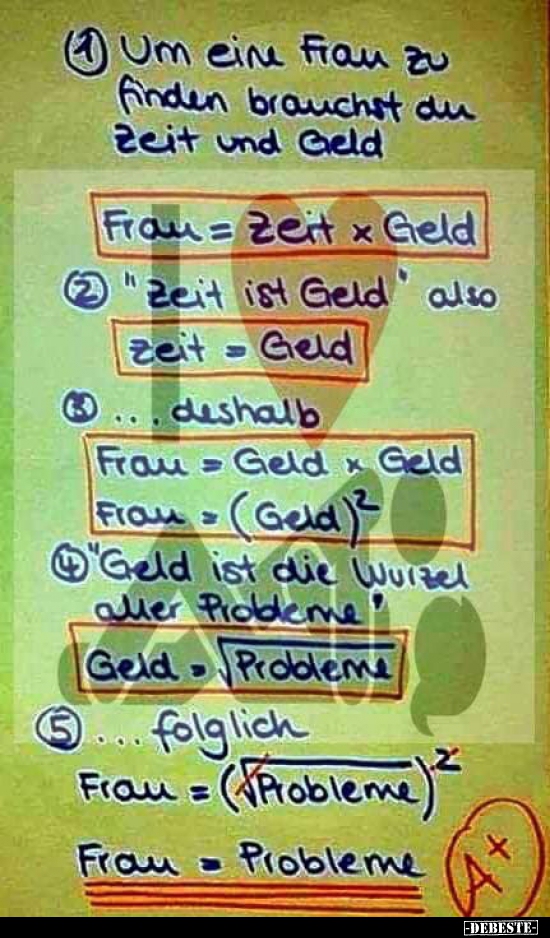 ① Um eine Frau zu
finden brauchst du
Zeit und Geld
Frau = Zeit x Geld
② "Zeit ist Geld" also
Zeit = Geld
③ ... deshalb
Frau = Geld x Geld
Frau = (Geld)²
④ "Geld ist die Wurzel
aller Probleme"
Geld = √Probleme
⑤ ... folglich
Frau = (√Probleme)²
Frau = Probleme
A+
-DEBESTE-